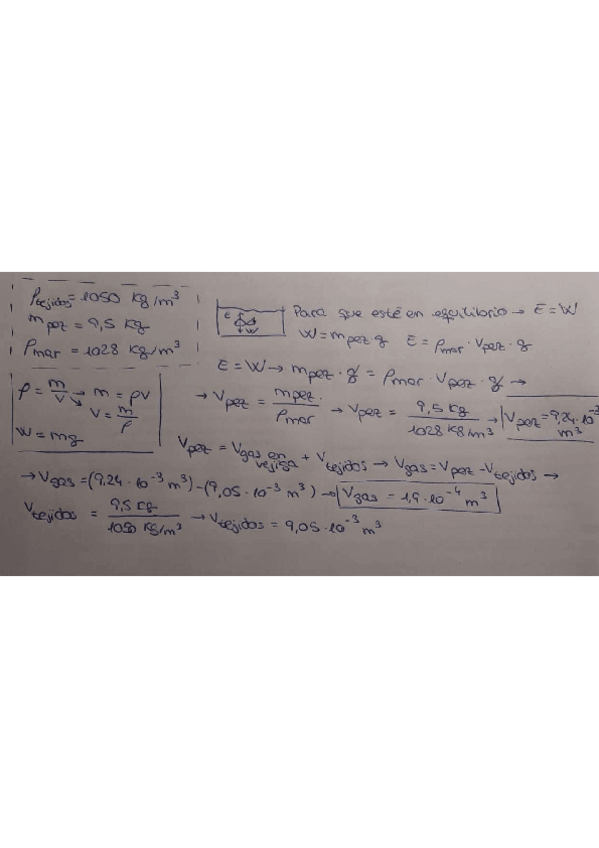 ρtejidos = 1050 kg/m³
mpez = 9,5 kg
ρmar = 1028 kg/m³
E
W
Para que esté en equilibrio → E = W
W = mpez·g E = ρmar · Vpez · g
E = W → mpez · g = ρmar · Vpez · g →
→ Vpez = mpez / ρmar → Vpez = 9,5 kg / 1028 kg/m³ → Vpez = 9,24·10⁻³ m³
ρ = m/V → m = ρV
V = m/ρ
W = mg
Vpez = Vgas en vejiga + Vtejidos → Vgas = Vpez - Vtejidos →
→ Vgas = (9,24 · 10⁻³ m³) - (9,05 · 10⁻³ m³) → Vgas = 1,9 · 10⁻⁴ m³
Vtejidos = 9,5 kg / 1050 kg/m³ → Vtejidos = 9,05 · 10⁻³ m³